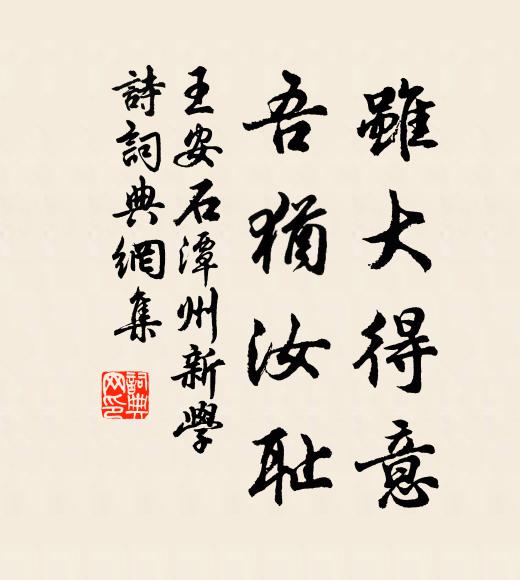 雖大得意
吾猶汝耻
王安石潭州新學
詩詞典網集